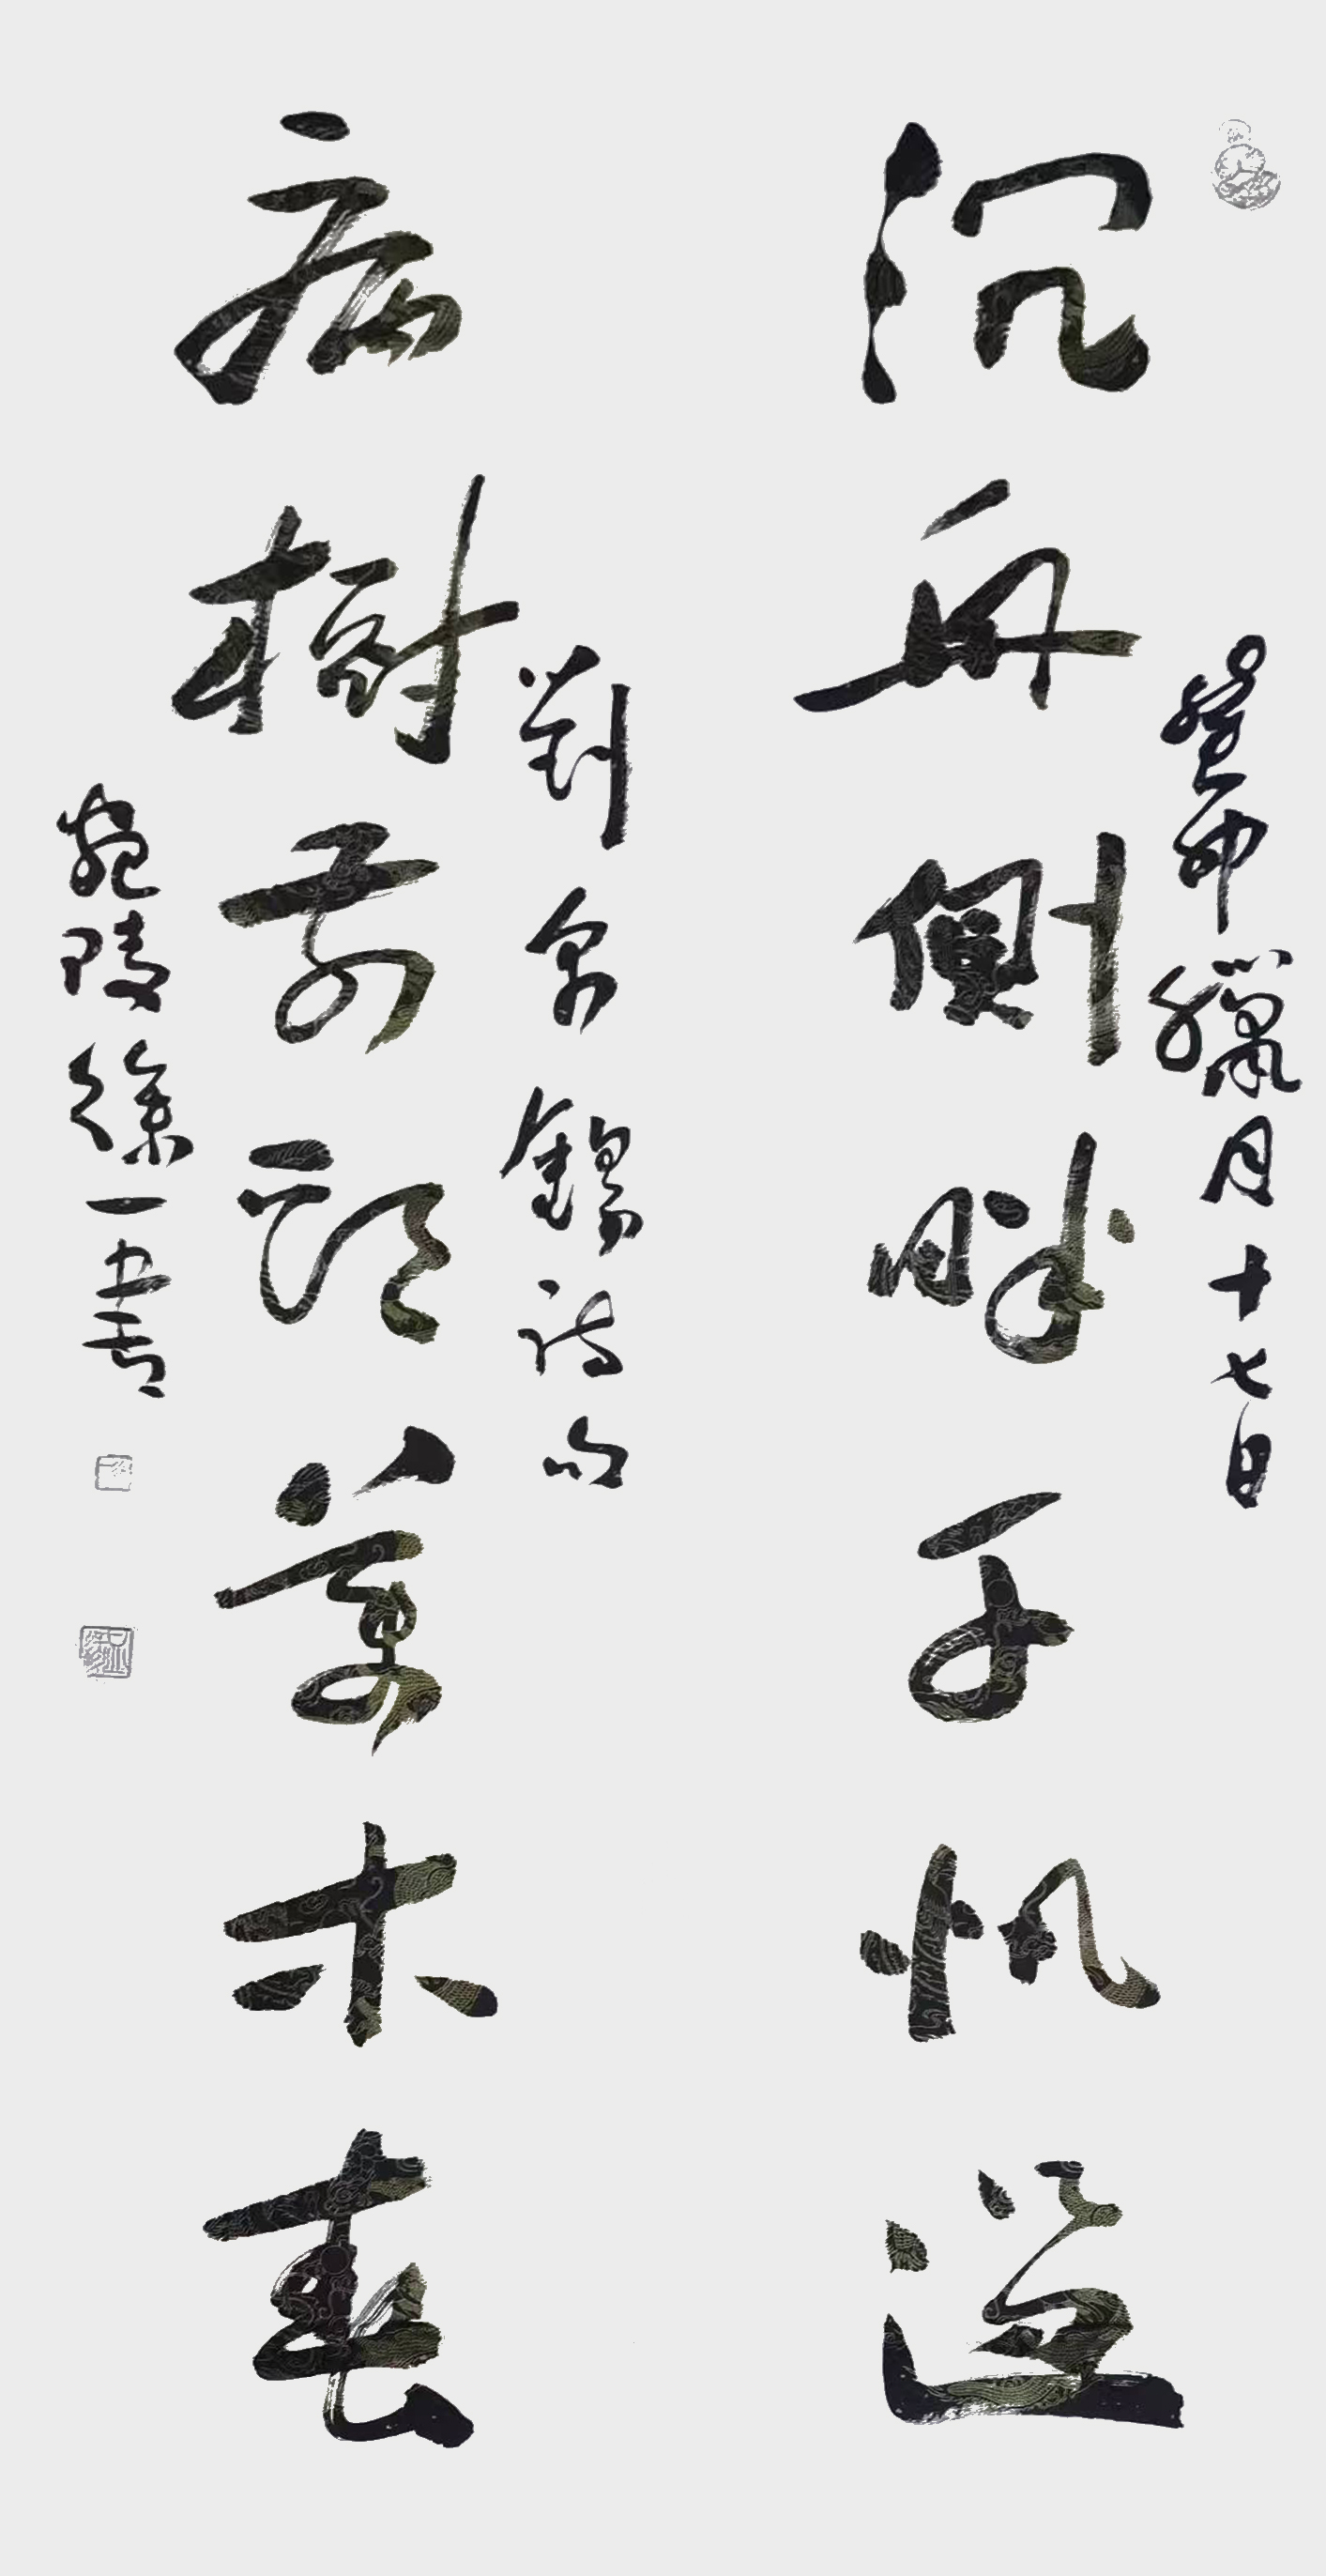 癸卯臘月十七日
沉舟側畔千帆過
劉禹錫詩句
病樹前頭萬木春
宛陵徐一書